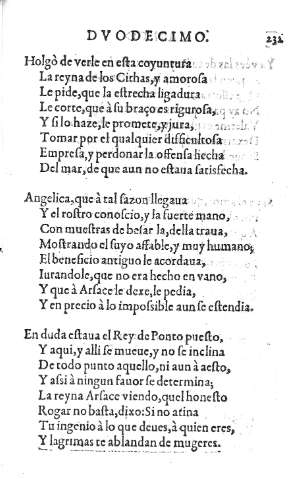 DVODECIMO. 232
Holgò de verle en esta coyuntura
La reyna de los Cithas, y amorosa
Le pide, que la estrecha ligadura
Le corte, que à su braço es rigurosa,
Y si lo haze, le promete, y jura,
Tomar por el qualquier dificultosa
Empresa, y perdonar la offensa hecha
Del mar, de que aun no estaua satisfecha.
Angelica, que à tal sazon llegaua
Y el rostro conoscio, y la fuerte mano,
Con muestras de besar la, della traua,
Mostrando el suyo affable, y muy humano;
El beneficio antiguo le acordaua,
Iurandole, que no era hecho en vano,
Y que à Arsace le dexe, le pedia,
Y en precio à lo impossible aun se estendia.
En duda estaua el Rey de Ponto puesto,
Y aqui, y alli se mueue, y no se inclina
De todo punto aquello, ni aun à aesto,
Y assi à ningun fauor se determina;
La reyna Arsace viendo, quel honesto
Rogar no basta, dixo: Si no atina
Tu ingenio à lo que deues, à quien eres,
Y lagrimas te ablandan de mugeres.